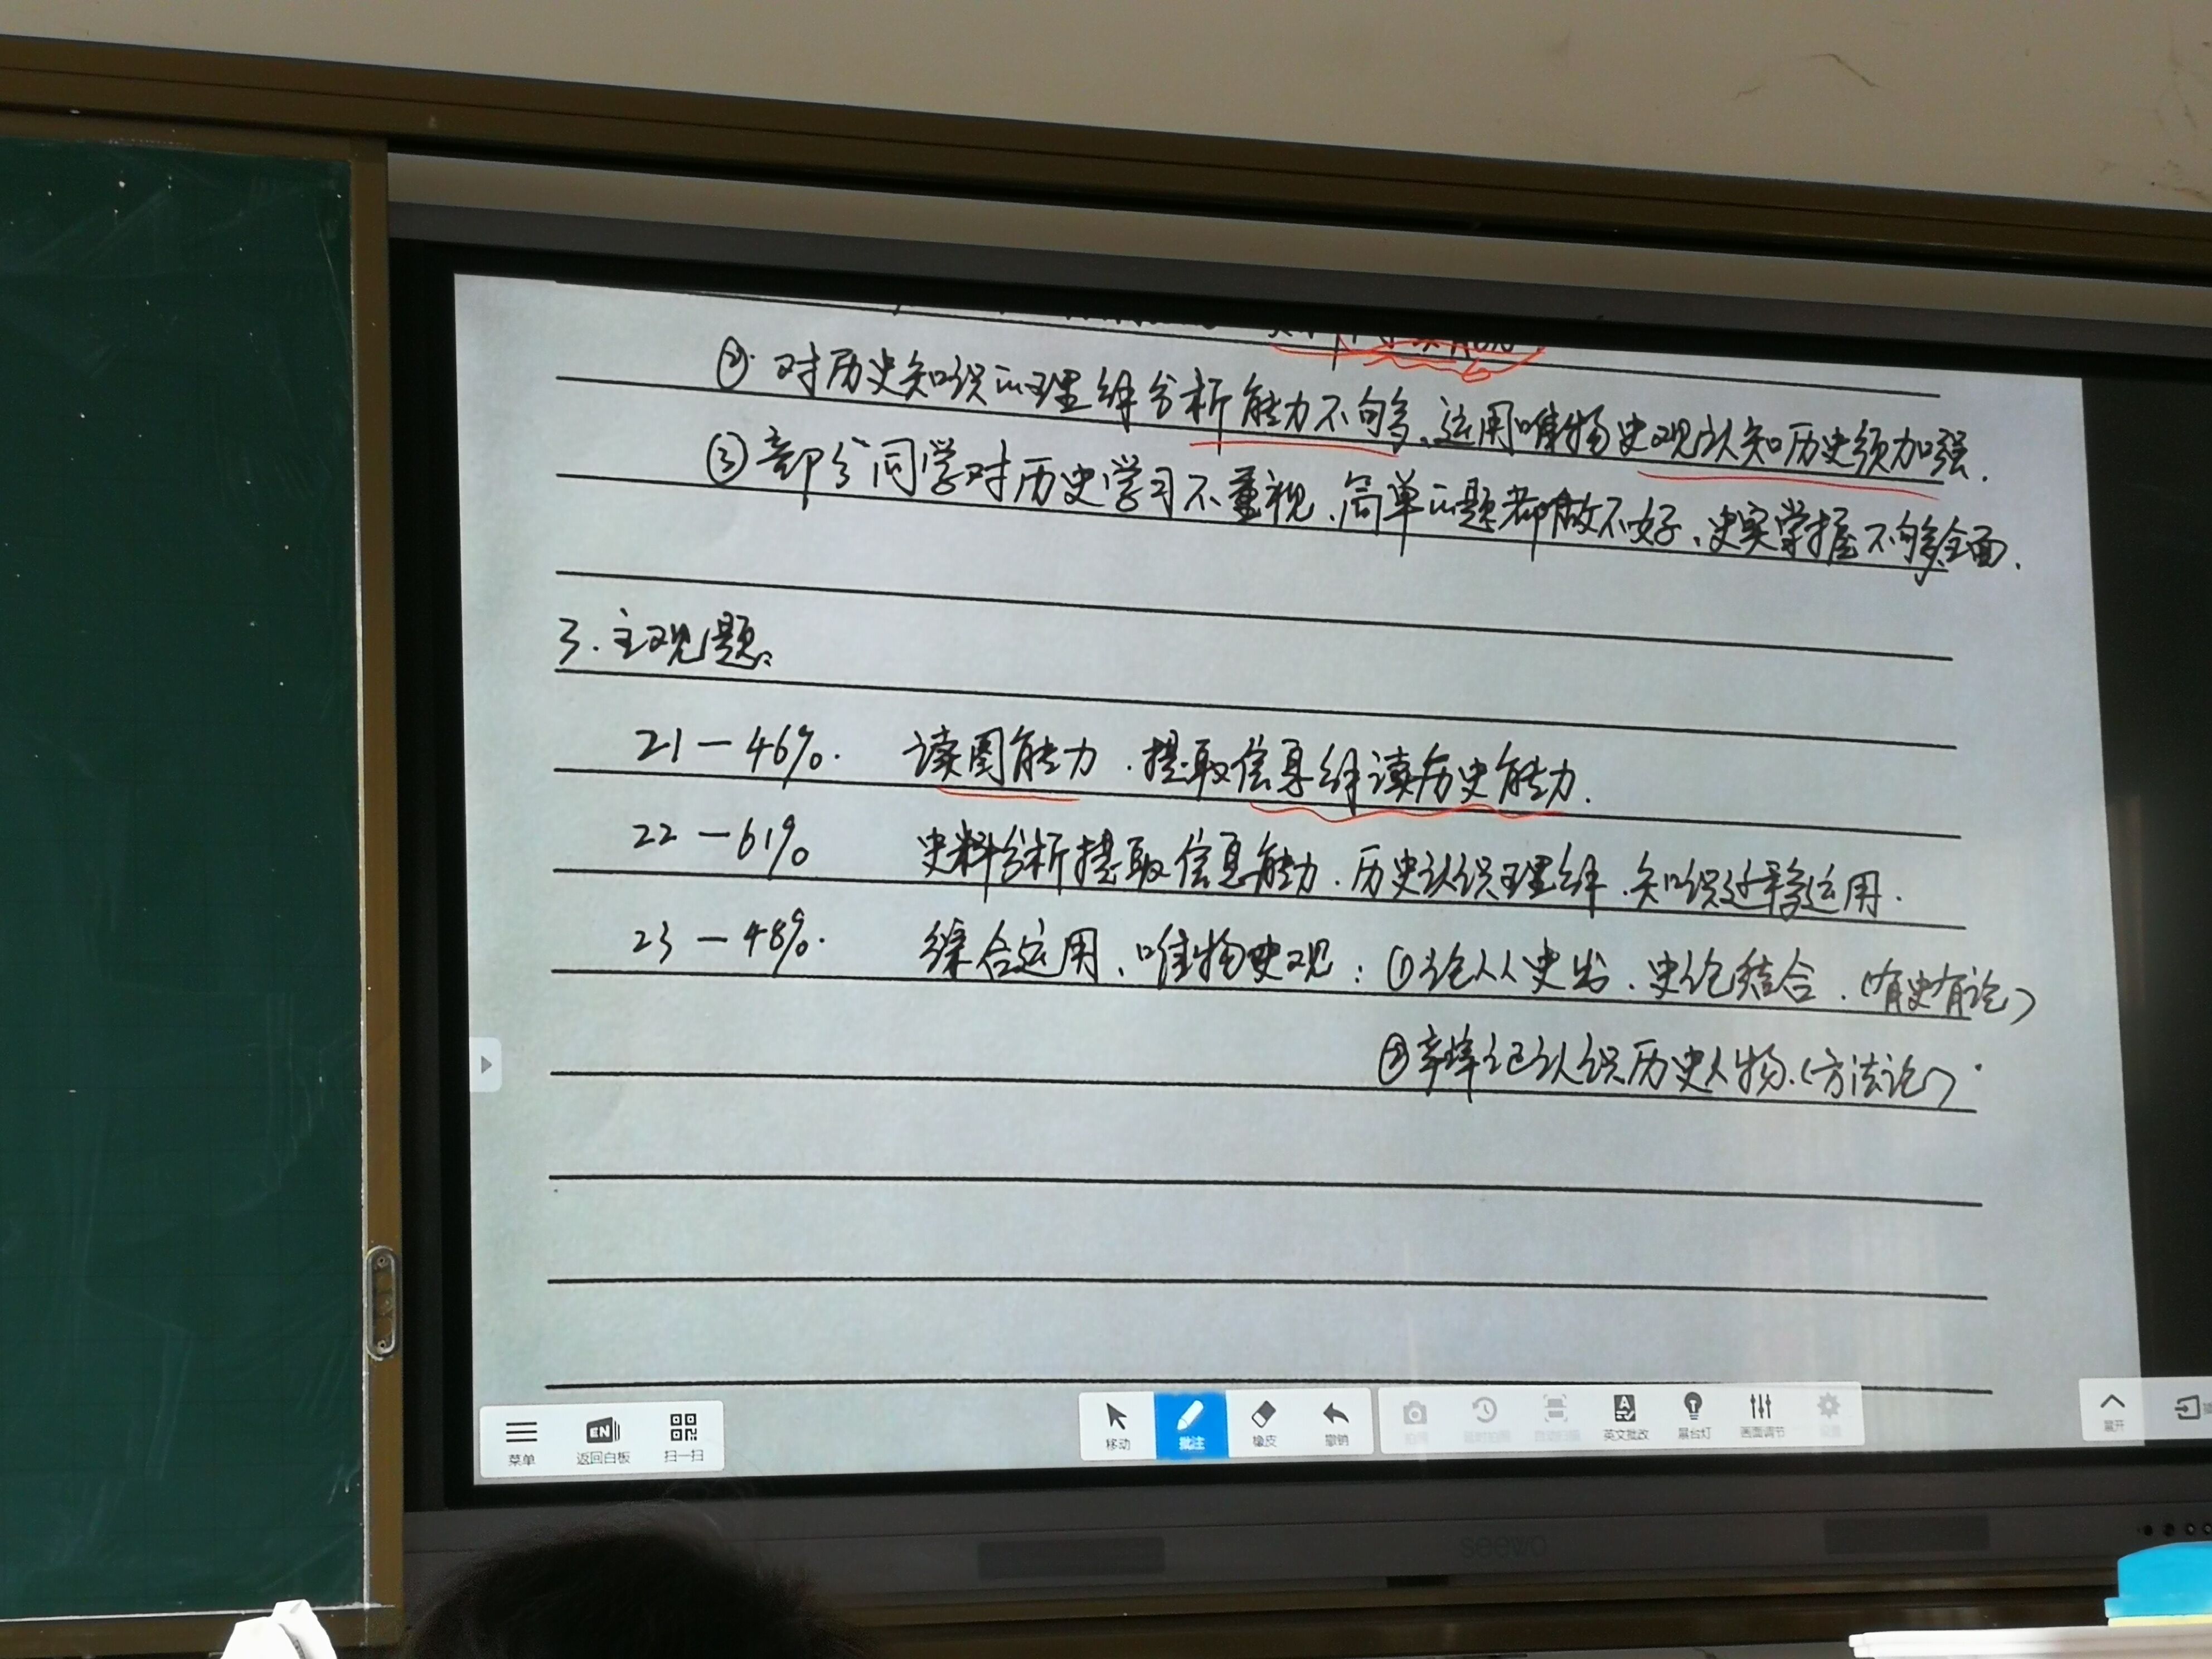 ②.对历史知识的理解分析能力不够、运用唯物史观认知历史须加强.
③部分同学对历史学习不重视、简单的题都做不好、史实掌握不够全面.
3.主观题:
21—46%. 读图能力.提取信息解读历史能力.
22—61% 史料分析提取信息能力.历史认识理解.知识迁移运用.
23—48%. 综合运用、唯物史观:①论从史出.史论结合.(有史有论)
②辩证认识历史人物.(方法论).
菜单 返回白板 扫一扫 移动 批注 橡皮 撤销 拍照 延时拍照 英文批改 展台灯 画面调节 设置 展开
seewo